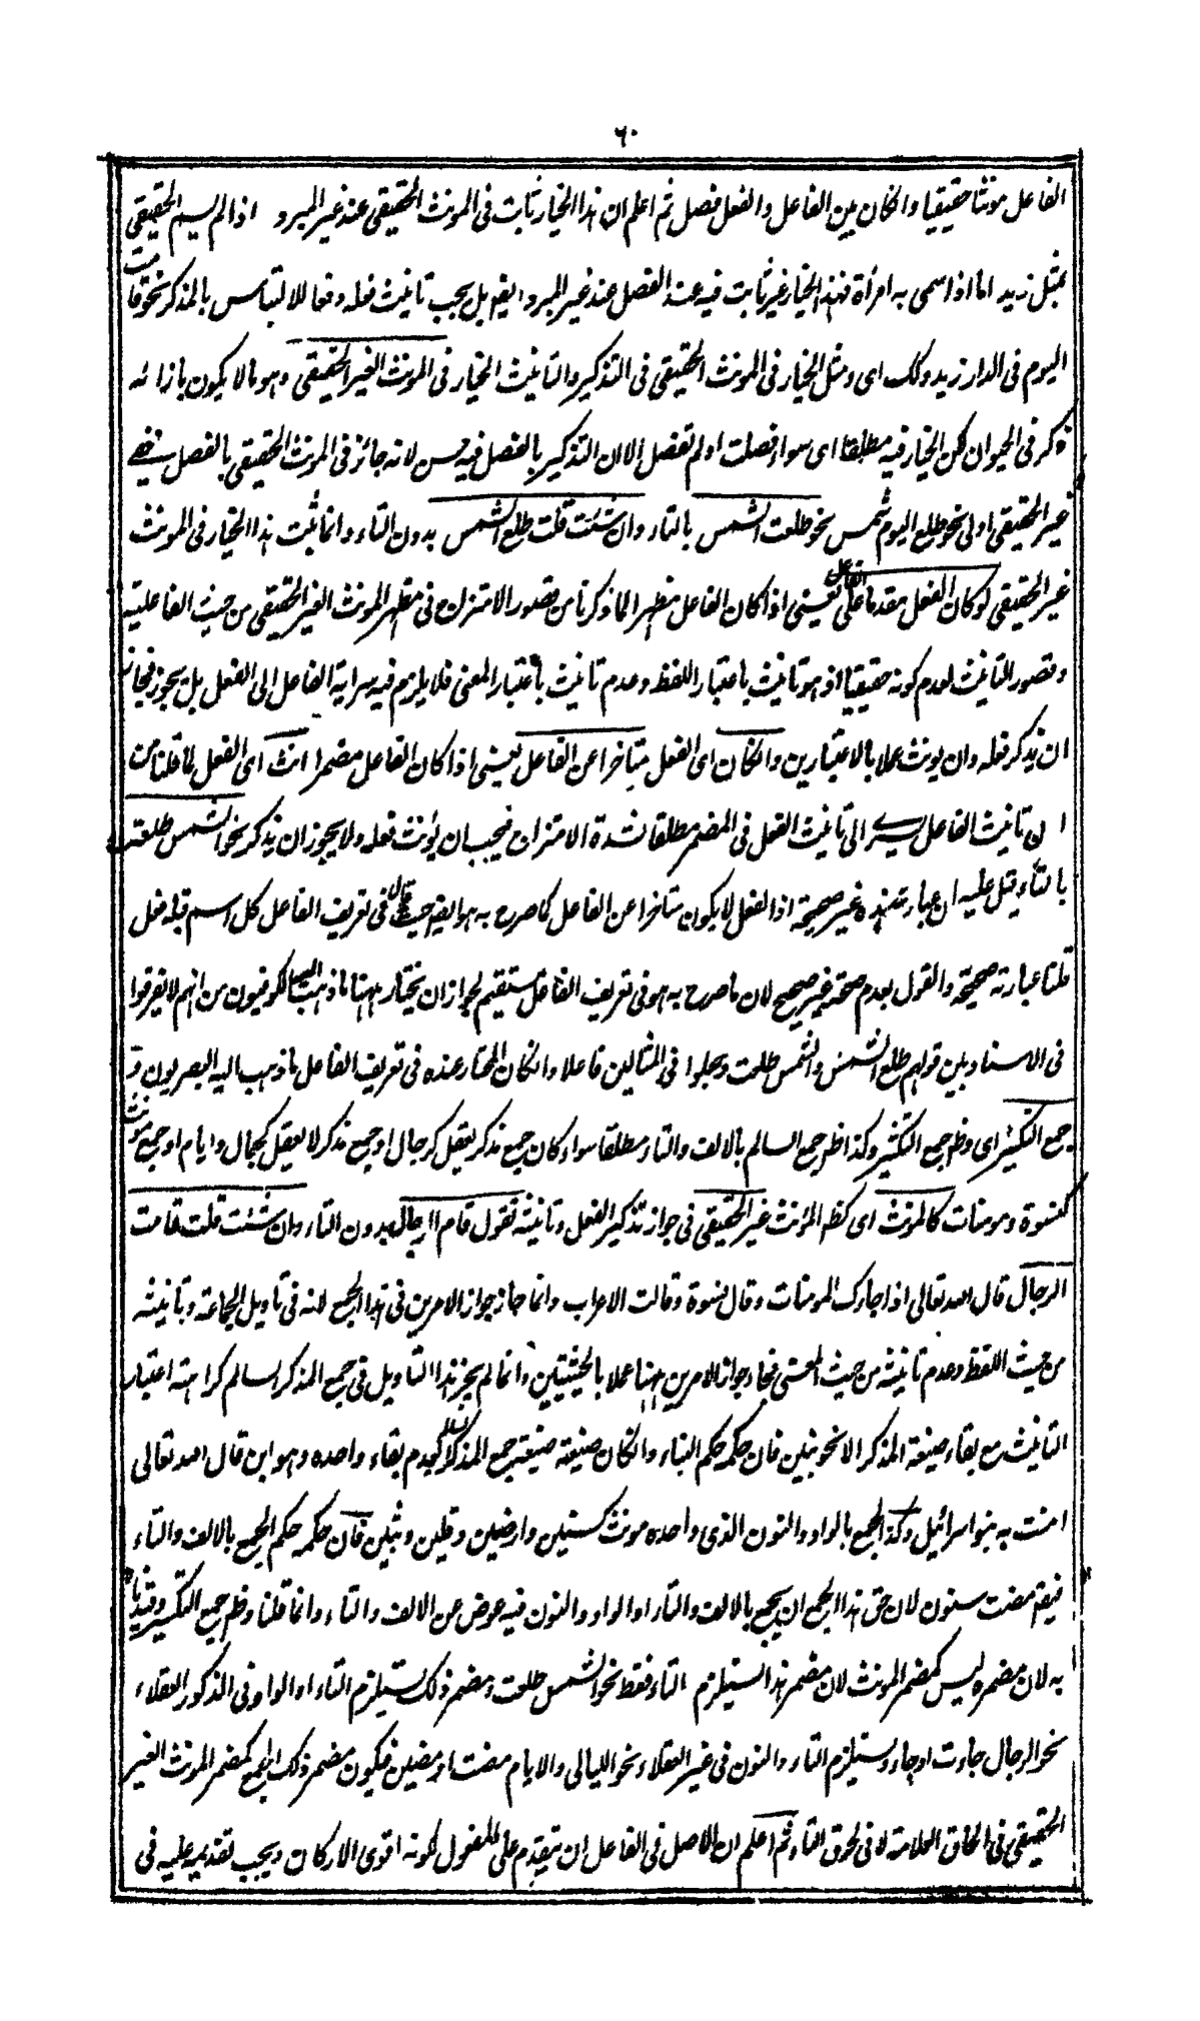 ٦٠
الفاعل مونثا حقيقيا وان كان بين الفاعل والفعل فصل ثم اعلم ان هذا الخيار ثابت فى المونث الحقيقى عند غير المبرد اذا لم يسم الحقيقى
بمثل زيد اما اذا سمى به امرأة فهذا الخيار غير ثابت فيه عند الفصل عند غير المبرد ايضا بل يجب تانيث فعله دفعا للالتباس بالمذكر نحو قامت
اليوم فى الدار زيد وكذلك اى ومثل الخيار فى المونث الحقيقى فى التذكير والتانيث الخيار فى المونث الغير الحقيقى وهو ما لا يكون بازائه
ذكر فى الحيوان لكن الخيار فيه مطلقا اى سواء فصلت او لم تفصل الا ان التذكير بالفصل فيه حسن لانه جائز فى المونث الحقيقى بالفصل ففى
غير الحقيقى اولى نحو طلع اليوم شمس نحو طلعت الشمس بالتاء وان شئت قلت طلع الشمس بدون التاء وانما ثبت هذا الخيار فى المونث
غير الحقيقى لو كان الفعل مقدما على الفاعل يعنى اذا كان الفاعل مظهرا لما ذكرنا من قصور الامتزاج فى مظهر المونث الغير الحقيقى من حيث الفاعلية
وقصور التانيث لعدم كونه حقيقيا اذ هو تانيث باعتبار اللفظ وعدم تانيث باعتبار المعنى فلا يلزم فيه سراية الفاعل الى الفعل بل يجوز فجاز
ان يذكر فعله وان يونث عملا بالاعتبارين وان كان اى الفعل متأخرا عن الفاعل يعنى اذا كان الفاعل مضمرا انث اى الفعل لما قلنا من
ان تانيث الفاعل يسرى الى تانيث الفعل فى المضمر مطلقا لشدة الامتزاج فيجب ان يؤنث فعله ولا يجوز ان يذكر نحو الشمس طلعت
بالتاء قيل عليه ان عبارته هذه غير صحيحة اذ الفعل لا يكون متأخرا عن الفاعل كما صرح به هو ايضا حيث قال فى تعريف الفاعل كل اسم قبله فعل
قلنا عبارته صحيحة والقول بعدم صحته غير صحيح لان ما صرح به هو فى تعريف الفاعل مستقيم لجواز ان يختار ههنا ما ذهب اليه الكوفيون من انهم لا يفرقوا
فى الاسناد بين قولهم طلع الشمس والشمس طلعت وجعلوا فى المثالين فاعلا وان كان المختار عنده فى تعريف الفاعل ما ذهب اليه البصريون و
جمع التكسير اى وظاهر جمع التكسير وكذا ظاهر جمع السالم بالالف والتاء مطلقا سواء كان جمع مذكر يعقل كرجال او جمع مذكر لا يعقل كجمال وايام او جمع مونث
كنسوة ومومنات كالمونث اى كظاهر المونث غير الحقيقى فى جواز تذكير الفعل وتانيثه تقول قام الرجال بدون التاء وان شئت قلت قامت
الرجال قال الله تعالى اذا جاءك المومنات وقال نسوة وقالت الاعراب وانما جاز جواز الامرين فى هذا الجمع لانه فى تاويل الجماعة وتانيثه
من حيث اللفظ وعدم تانيثه من حيث المعنى فجاء جواز الامرين ههنا عملا بالحيثيتين وانما لم يجز هذا التاويل فى جمع المذكر السالم كراهة اعتبار
التانيث مع بقاء صيغة المذكر الا نحو بنين فان حكمه حكم البناء وان كان صيغة صيغة جمع المذكر السالم لعدم بقاء واحده وهو ابن قال الله تعالى
امنت به بنو اسرائيل وكذا الجمع بالواو والنون الذى واحده مونث كسنين وارضين وقلين وثبين فان حكمه حكم الجمع بالالف والتاء
فيقال مضت سنون لان حق هذا الجمع ان يجمع بالالف والتاء او الواو والنون فيه عوض عن الالف والتاء وانما قلنا وظاهر جمع التكسير وقيدنا
به لان مضمره ليس كمضمر المونث لان مضمر هذا يستلزم التاء فقط نحو الشمس طلعت ومضمر ذلك يستلزم التاء او الواو فى الذكور العقلاء
نحو الرجال جاءت او جاءوا ويستلزم التاء والنون فى غير العقلاء نحو الليالى والايام مضت او مضين فيكون مضمر ذلك الجمع كمضمر المونث الغير
الحقيقى فى الحاق العلامة لا فى لحوق التاء ثم اعلم ان الاصل فى الفاعل ان يتقدم على المفعول لكونه اقوى الاركان ويجب تقديمه عليه فى